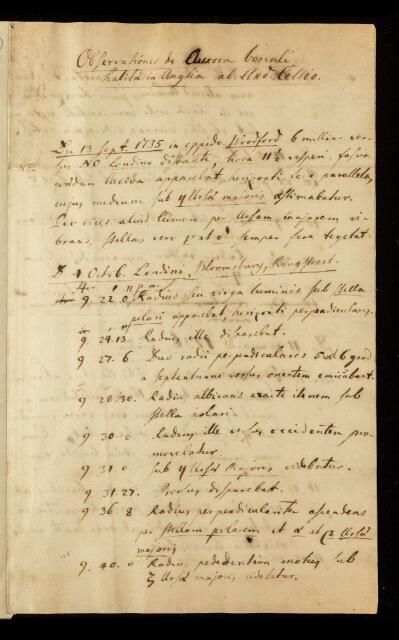 Observationes de Aurora boreali
habitæ in Anglia ab And. Celsio.
Die 13 Sept. 1735 in oppido Woodford 6 milliar. ver-
sus NO Londino distante, hora 11½ vesperi, fascia
quædam lucida apparebat, horizonti fere parallela,
cujus medium sub η Ursæ majoris æstimabatur.
Per vices aliud lumen per Ursam majorem vi-
brans, stellas vero semper fere tegebat.
D. 4 Octob. Londini, Bloomsbury, Kingstreet.
h ′ ″ p.m.
9. 22. 0. Radius seu virga luminis sub stella
polari apparebat, horizonti perpendicularis.
9 24. 13. Radius ille disparebat.
9 27. 6. Duo radii perpendiculares 5 vel 6 grad
a septentrione versus orientem emicabant.
9 28. 30. Radius albicans exacte itenem sub
stella polari.
9 30. 0 Radius ille versus occidentem pro-
movebatur.
9 31. 0. sub η Ursæ Majoris videbatur.
9. 31. 27. Prorsus disparebat.
9 36. 8 Radius perpendiculariter ascendens
per stellam polarem et α et β Ursæ
majoris.
9. 40. 0 Radius, pedetentim motus, sub
ζ Ursæ majoris videbatur.